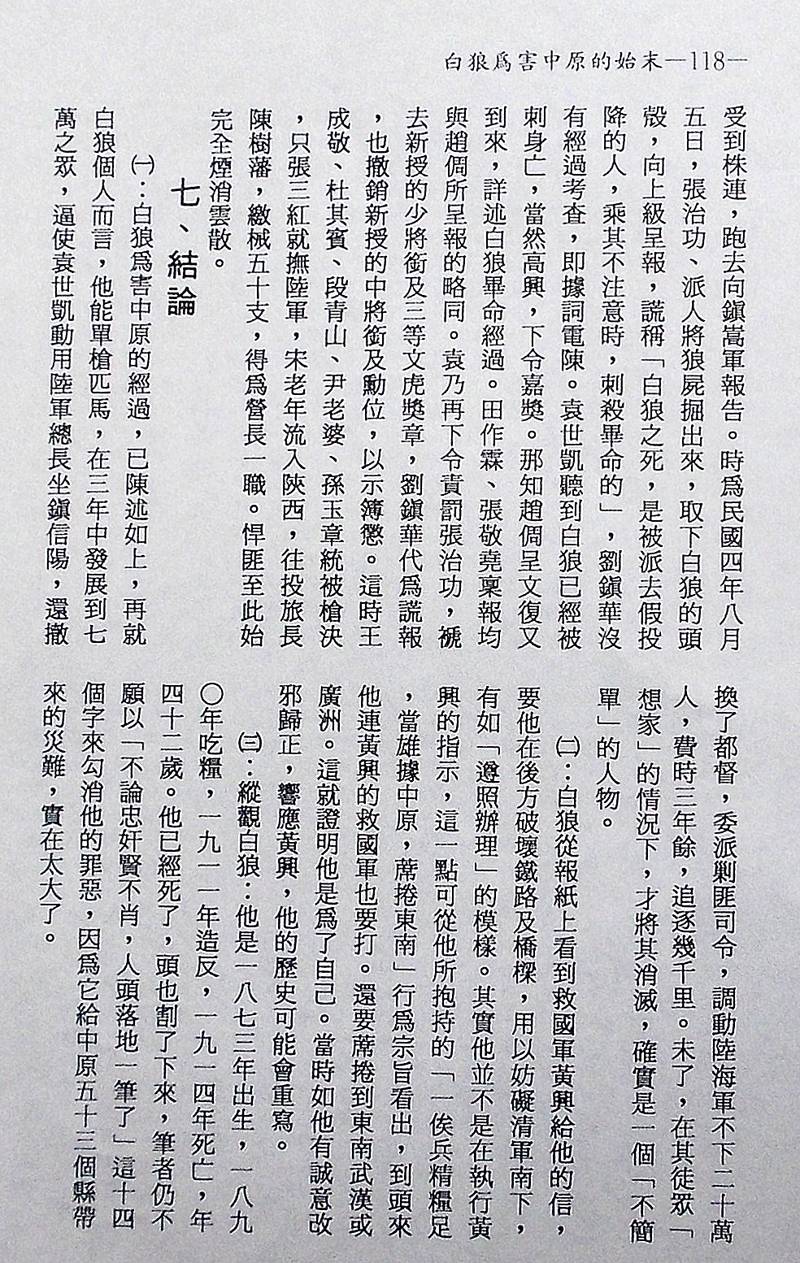 白狼爲害中原的始末—118—
受到株連，跑去向鎮嵩軍報告。時爲民國四年八月
五日，張治功、派人將狼屍掘出來，取下白狼的頭
殼，向上級呈報，謊稱「白狼之死，是被派去假投
降的人，乘其不注意時，刺殺畢命的」，劉鎮華沒
有經過考查，即據詞電陳。袁世凱聽到白狼已經被
刺身亡，當然高興，下令嘉獎。那知趙倜呈文復又
到來，詳述白狼畢命經過。田作霖、張敬堯稟報均
與趙倜所呈報的略同。袁乃再下令責罰張治功，褫
去新授的少將銜及三等文虎獎章，劉鎮華代爲謊報
，也撤銷新授的中將銜及勳位，以示簿懲。這時王
成敬、杜其賓、段青山、尹老婆、孫玉章統被槍決
，只張三紅就撫陸軍，宋老年流入陝西，往投旅長
陳樹藩，繳械五十支，得爲營長一職。悍匪至此始
完全煙消雲散。
七、結論
㈠：白狼爲害中原的經過，已陳述如上，再就
白狼個人而言，他能單槍匹馬，在三年中發展到七
萬之眾，逼使袁世凱動用陸軍總長坐鎮信陽，還撤
換了都督，委派剿匪司令，調動陸海軍不下二十萬
人，費時三年餘，追逐幾千里。末了，在其徒眾「
想家」的情況下，才將其消滅，確實是一個「不簡
單」的人物。
㈡：白狼從報紙上看到救國軍黃興給他的信，
要他在後方破壞鐵路及橋樑，用以妨礙清軍南下，
有如「遵照辦理」的模樣。其實他並不是在執行黃
興的指示，這一點可從他所抱持的「一俟兵精糧足
，當雄據中原，蓆捲東南」行爲宗旨看出，到頭來
他連黃興的救國軍也要打。還要蓆捲到東南武漢或
廣洲。這就證明他是爲了自己。當時如他有誠意改
邪歸正，響應黃興，他的歷史可能會重寫。
㈢：縱觀白狼：他是一八七三年出生，一八九
〇年吃糧，一九一一年造反，一九一四年死亡，年
四十二歲。他已經死了，頭也割了下來，筆者仍不
願以「不論忠奸賢不肖，人頭落地一筆了」這十四
個字來勾消他的罪惡，因爲它給中原五十三個縣帶
來的災難，實在太大了。